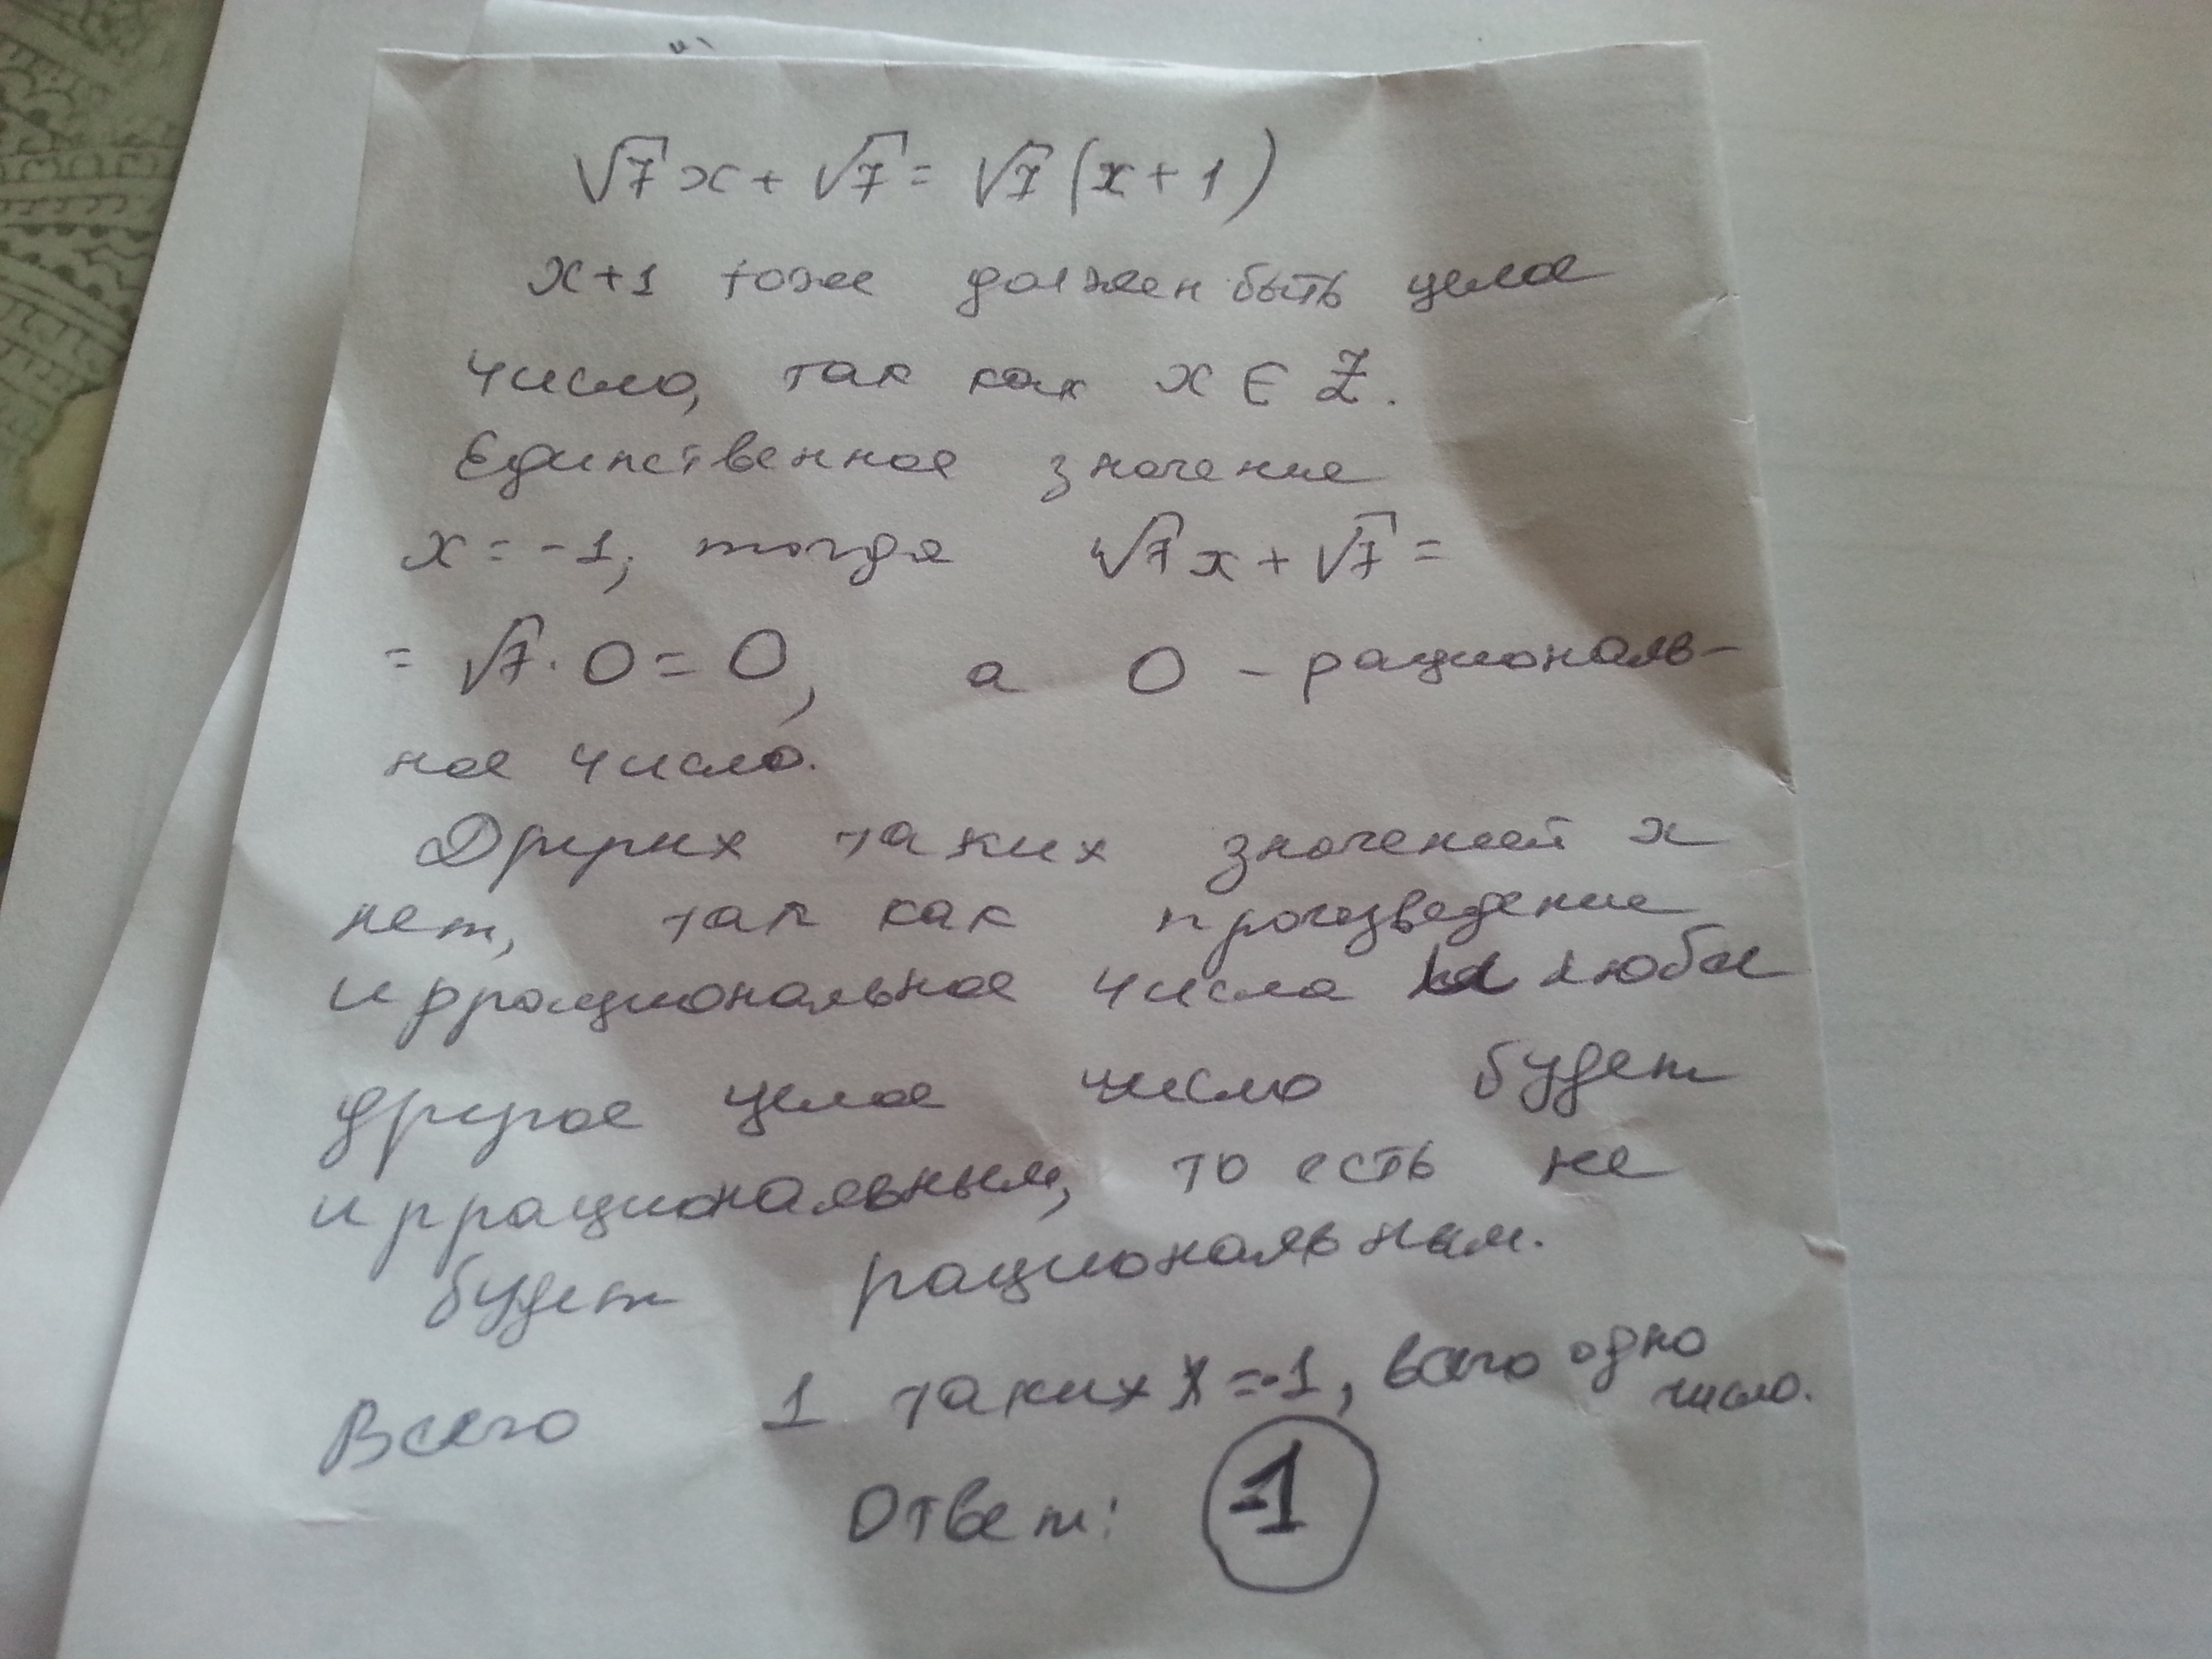 √7 x + √7 = √7 (x + 1)
x+1 тоже должен быть целое
число, так как x ∈ Z.
Единственное значение
x = -1, тогда √7 x + √7 =
= √7 · 0 = 0, а 0 - рациональ-
ное число.
Других таких значений x
нет, так как произведение
иррациональное числа на любое
другое целое число будет
иррациональным, то есть не
будет рациональным.
Всего 1 таких x = -1, всего одно
число.
Ответ: -1